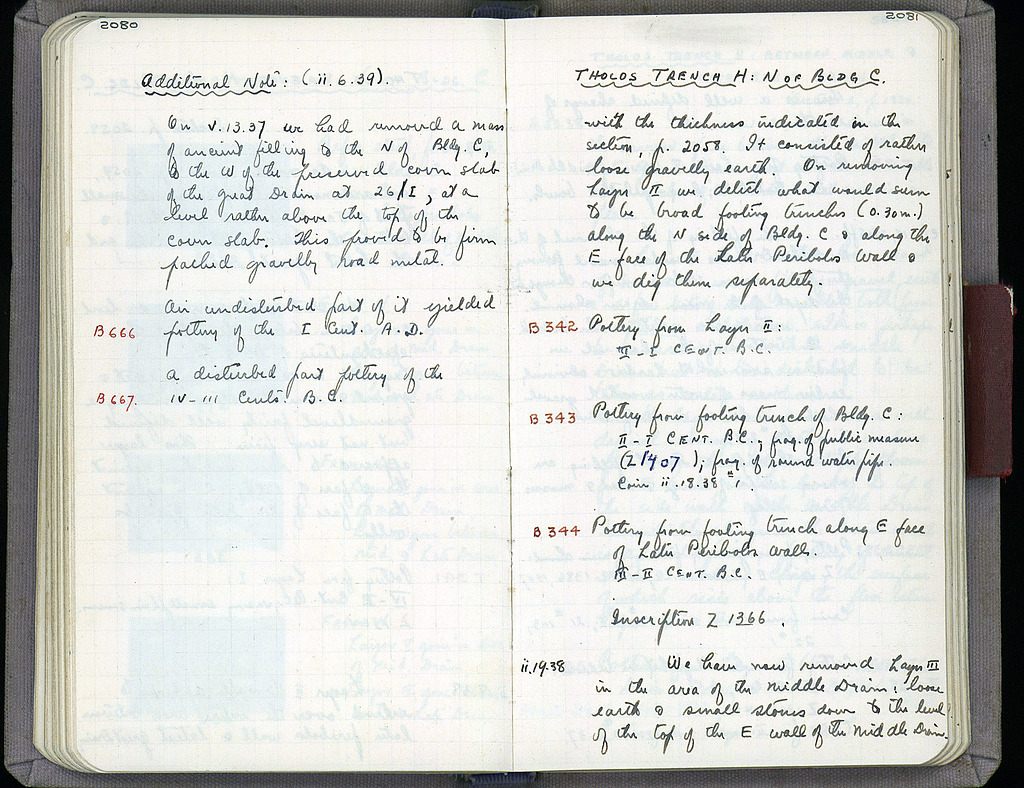 2080
Additional Note: (ii.6.39).
On V.13.37 we had removed a mass
of ancient filling to the N of Bldg. C,
to the W of the preserved cover slab
of the great Drain at 26/Ι, at a
level rather above the top of the
cover slab. This proved to be firm
packed gravelly road metal.
An undisturbed part of it yielded
B 666 pottery of the I Cent. A.D.
a disturbed part pottery of the
B 667. IV-III Cents. B.C.
2081
THOLOS TRENCH H: N OF BLDG C.
with the thickness indicated in the
section, p. 2058. It consisted of rather
loose gravelly earth. On removing
Layer II we detect what would seem
to be broad footing trenches (0.30 m.)
along the N side of Bldg. C & along the
E face of the Later Peribolos Wall &
we dig them separately.
B 342 Pottery from Layer II:
III-I CENT. B.C.
B 343 Pottery from footing trench of Bldg. C:
II-I CENT. B.C., frag. of public measure
(21407); frag. of round water pipe.
Coin ii.18.38 #1.
B 344 Pottery from footing trench along E face
of Later Peribolos wall.
III-II CENT. B.C.
Inscription Z 1366.
ii.19.38 We have now removed Layer III
in the area of the Middle Drain: loose
earth & small stones down to the level
of the top of the E wall of the Middle Drain.